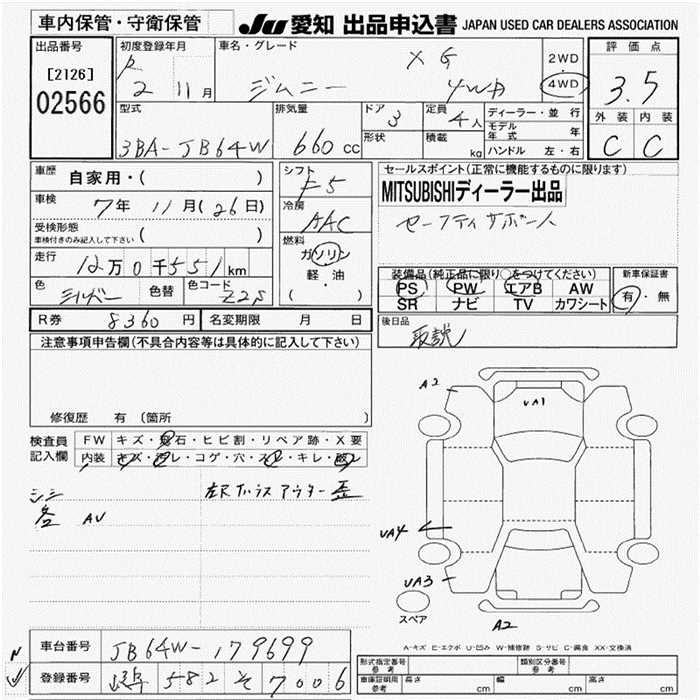 車内保管・守衛保管
JU 愛知 出品申込書 JAPAN USED CAR DEALERS ASSOCIATION
出品番号
[2126]
02566
初度登録年月
R 2 11月
車名・グレード
XG
ジムニー 4WD
2WD
4WD
評価点
3.5
外装 内装
C C
型式
3BA-JB64W
排気量
660 cc
ドア 3
形状
定員 4人
積載 kg
ディーラー・並行
モデル年式 年
ハンドル 左・右
車歴 自家用・( )
車検 7年 11月(26日)
受検形態
車検付きのみ記入して下さい ( )
走行 12万0千551km
色 シルバー 色替 色コード Z2S
シフト F5
冷房 AAC
燃料
ガソリン
軽・油
( )
セールスポイント(正常に機能するものに限ります)
MITSUBISHIディーラー出品
セーフティサポート
装備品(純正品に限り○をつけてください)
PS PW エアB AW
SR ナビ TV カワシート
新車保証書
有・無
R券 8360円 名変期限 月 日
後日品
取説
注意事項申告欄(不具合内容等は具体的に記入して下さい)
修復歴 有(箇所 )
検査員記入欄
FW キズ・飛石・ヒビ割・リペア跡・X要
内装 キズ・汚レ・コゲ・穴・スレ・キレ・破レ
シミ
各 AU
アウター 歪
A2
UA1
UA4
UA3
A2
スペア
A-キズ E-エクボ U-凹み W-補修跡 S-サビ C-腐食 XX-交換済
車台番号 JB64W-179699
登録番号 582 そ 7006
型式指定番号 参考
類別区分番号 参考
車庫証明用 参考 長さ cm 幅 cm 高さ cm